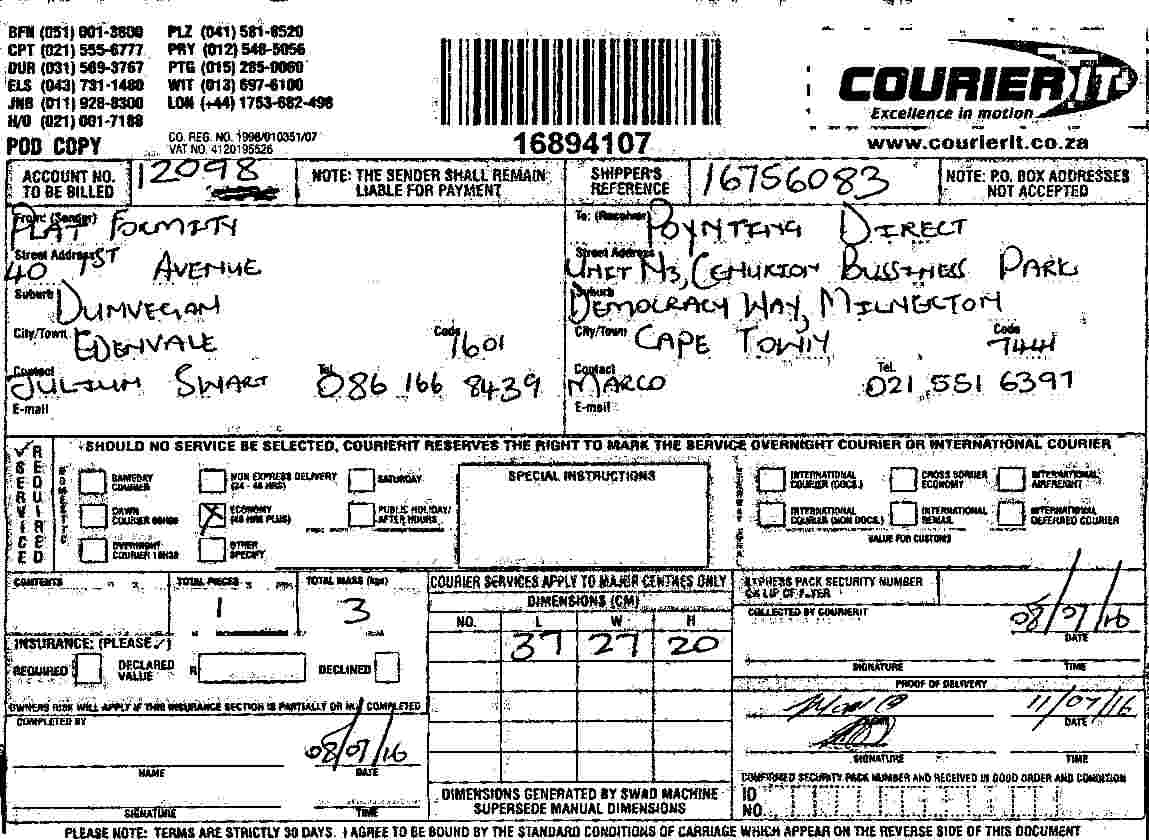 BFN (051) 001-3800 PLZ (041) 581-8520
CPT (021) 555-6777 PRY (012) 548-5056
DUR (031) 569-3767 PTG (015) 285-0060
ELS (043) 731-1480 WIT (013) 697-6100
JNB (011) 928-8300 LON (+44) 1753-682-498
H/O (021) 001-7188
POD COPY
CO. REG. NO. 1998/010351/07
VAT NO. 4120195526
16894107
COURIER IT
Excellence in motion
www.courierit.co.za
ACCOUNT NO. TO BE BILLED 12098
NOTE: THE SENDER SHALL REMAIN LIABLE FOR PAYMENT
SHIPPER'S REFERENCE 16756083
NOTE: P.O. BOX ADDRESSES NOT ACCEPTED
From: (Sender) PLAT FORMITY
Street Address 40 1ST AVENUE
Suburb DUNVEGAN
City/Town EDENVALE Code 1601
Contact SWART Tel. 086 166 8439
E-mail
To: (Receiver) POYNTING DIRECT
Street Address UNIT N3, CENURION BUSSINESS PARK
Suburb DEMOCRACY WAY, MILNERTON
City/Town CAPE TOWN Code 7441
Contact MARCO Tel. 021 551 6397
E-mail
SERVICE REQUIRED
SHOULD NO SERVICE BE SELECTED, COURIERIT RESERVES THE RIGHT TO MARK THE SERVICE OVERNIGHT COURIER OR INTERNATIONAL COURIER
DOMESTIC
SAMEDAY COURIER
NON EXPRESS DELIVERY (24 - 48 HRS)
SATURDAY
DAWN COURIER
X ECONOMY (48 HRS PLUS)
PUBLIC HOLIDAY/ AFTER HOURS
OVERNIGHT COURIER
OTHER SPECIFY
SPECIAL INSTRUCTIONS
INTERNATIONAL COURIER (DOCS.)
CROSS BORDER ECONOMY
INTERNATIONAL AIRFREIGHT
INTERNATIONAL COURIER (NON DOCS.)
INTERNATIONAL REMAIL
INTERNATIONAL DEFERRED COURIER
VALUE FOR CUSTOMS
CONTENTS
TOTAL PIECES 1
TOTAL MASS (kgs) 3
INSURANCE: (PLEASE ✓)
REQUIRED
DECLARED VALUE R
DECLINED
OWNERS RISK WILL APPLY IF THIS INSURANCE SECTION IS PARTIALLY OR NOT COMPLETED
COMPLETED BY
08/07/16
NAME DATE
SIGNATURE TIME
COURIER SERVICES APPLY TO MAJOR CENTRES ONLY
DIMENSIONS (CM)
NO. L W H
37 27 20
DIMENSIONS GENERATED BY SWAD MACHINE SUPERSEDE MANUAL DIMENSIONS
EXPRESS PACK SECURITY NUMBER
COLLECTED BY COURIERIT
08/07/16
DATE
SIGNATURE TIME
PROOF OF DELIVERY
11/07/16
DATE
SIGNATURE TIME
CONFIRMED SECURITY PACK NUMBER AND RECEIVED IN GOOD ORDER AND CONDITION
ID NO.
PLEASE NOTE: TERMS ARE STRICTLY 30 DAYS. I AGREE TO BE BOUND BY THE STANDARD CONDITIONS OF CARRIAGE WHICH APPEAR ON THE REVERSE SIDE OF THIS DOCUMENT